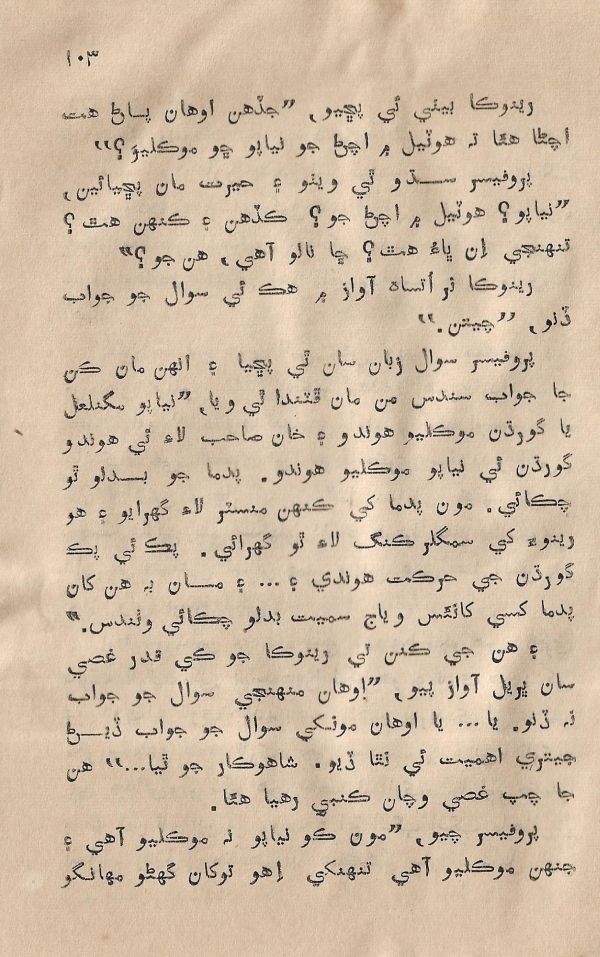 ۱۰۳
رينوڪا بيٺي ئي پڇيو، ”جڏهن اوهان پـاڻ هت
اچڻا هئا تہ هوٽيل ۾ اچڻ جو نياپو ڇو موڪليوَ؟“
پروفيسر سـڌو ٿي ويٺو ۽ حيرت مان پڇيائين،
”نياپو؟ هوٽيل ۾ اچڻ جو؟ ڪڏهن ۽ ڪنهن هٿ؟
تنهنجي اِن ڀاءُ هٿ؟ ڇا نالو آهي، هن جو؟“
رينوڪا نراُتساهہ آواز ۾ هڪ ئي سوال جو جواب
ڏنو، ”چيتن.“
پروفيسر سوال زبان سان ٿي پڇيا ۽ انهن مان ڪن
جا جواب سندس من مان ڦٽندا ٿي ويا، ”نياپو مگنلعل
يا گورڌن موڪليو هوندو ۽ خان صاحب لاءِ ئي هوندو
گورڌن ئي نياپو موڪليو هوندو. پدما جو بـدلو ٿو
چڪائي. مون پدما کي ڪنهن منسٽر لاءِ گهرايو ۽ هو
رينوءَ کي سمگلر ڪنگ لاءِ ٿو گهرائي. پڪ ئي پڪ
گورڌن جي حرڪت هوندي ۽... ۽ مـان بہ هن کان
پدما کسي کائنئس وياج سميت بدلو چڪائي وٺندس.“
۽ هن جي ڪنن تي رينوڪا جو ڪي قدر غصي
سان ڀريل آواز پيو، ”اوهان منهنجي سوال جو جواب
نہ ڏنو. يا... يا اوهان مونکي سوال جو جواب ڏيـڻ
جيتري اهميت ئي نٿا ڏيو. شاهوڪار جو ٿيا...“ هن
جا چپ غصي وچان ڪنبي رهيا هئا.
پروفيسر چيو، ”مون ڪو نياپو نہ موڪليو آهي ۽
جنهن موڪليو آهي تنهنکي اِهو توکان گهڻو مهانگو